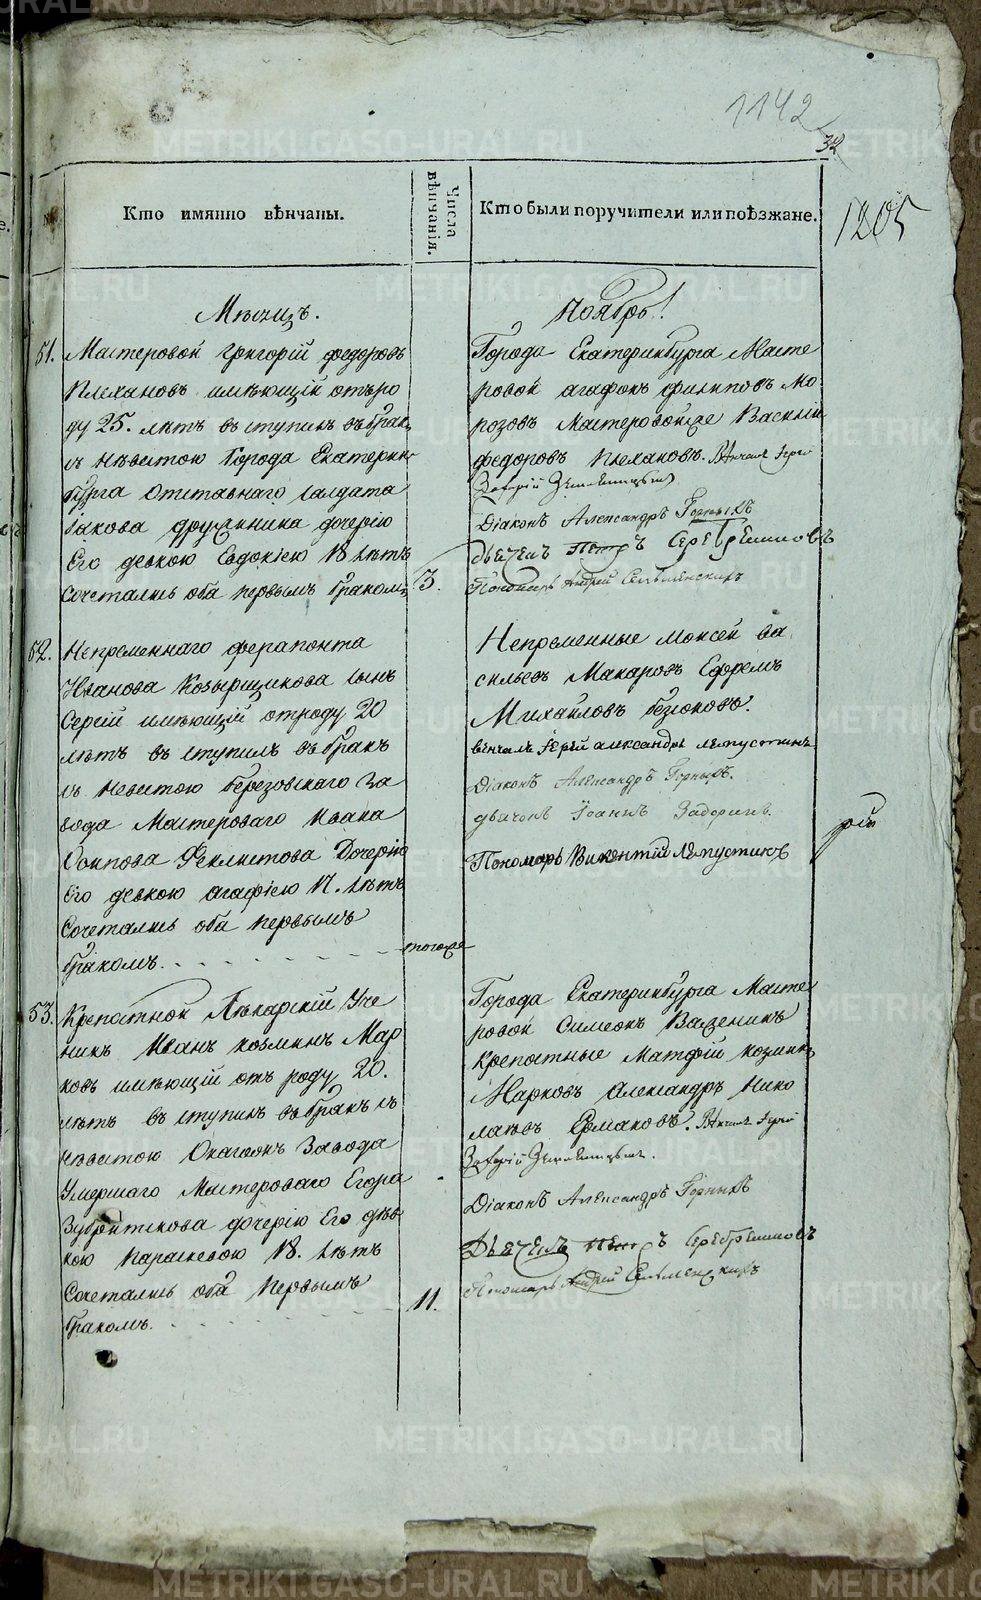 1142
32
1205
№
Кто имянно вѣнчаны.
Числа вѣнчанія.
Кто были поручители или поѣзжане.
Мѣсицъ.
Ноябрь!
51. Мастеровой григорій федоровъ
Плехановъ имѣющій отъро
ду 25. лѣтъ въступилъ въбракъ
съ невѣстою Города Екатерин
бурга отставнаго салдата
Іакова дружинина дочерію
Его девкою Евдокіею 18 лѣтъ
сочетались оба первымъ бракомъ
3.
Города Екатеринбурга Масте
ровой агафонъ филиповъ Мо
розовъ Мастеровойже Василій
федоровъ Плехановъ. Вѣнчалъ Іерей
Захарій
Діаконъ Александръ Горныхъ
дьячекъ Петръ Серебренниковъ
Пономарь Андрей
52. Непременнаго ферапонта
Иванова Козырщикова сынъ
Сергій имѣющій отроду 20
лѣтъ въступилъ въбракъ
съ невестою березовскаго За
вода Мастероваго Ивана
Осипова Феклистова Дочерію
Его девкою агафіею 17. лѣтъ
Сочетались оба первымъ
бракомъ.
тогоже
Непременные Моисей ва
сильевъ Макаровъ Ефремъ
Михайловъ безюковъ.
венчалъ Іерей александръ лепустинъ
Діаконъ Александръ Горныхъ.
дьячокъ Іоаннъ Задоринъ.
Пономарь Викентій Лепустинъ
53. Крепостной Лѣкарскій Уче
никъ Иванъ козминъ Мар
ковъ имѣющій отъ роду 20.
лѣтъ въступилъ въбракъ съ
невѣстою завода
Умершаго Мастероваго Егора
дочерію Его дѣв
кою параскевою 18. лѣтъ
Сочетались оба первымъ
бракомъ.
11.
Города Екатеринбурга Масте
ровой Симеонъ Важенинъ
Крепостные Матфій козминъ
Марковъ Александръ Нико
лаевъ Ермаковъ. Вѣнчалъ Іерей
Захарій
Діаконъ Александръ Горныхъ
Дьячекъ Петръ Серебренниковъ
Пономарь Андрей
METRIKI.GASO-URAL.RU